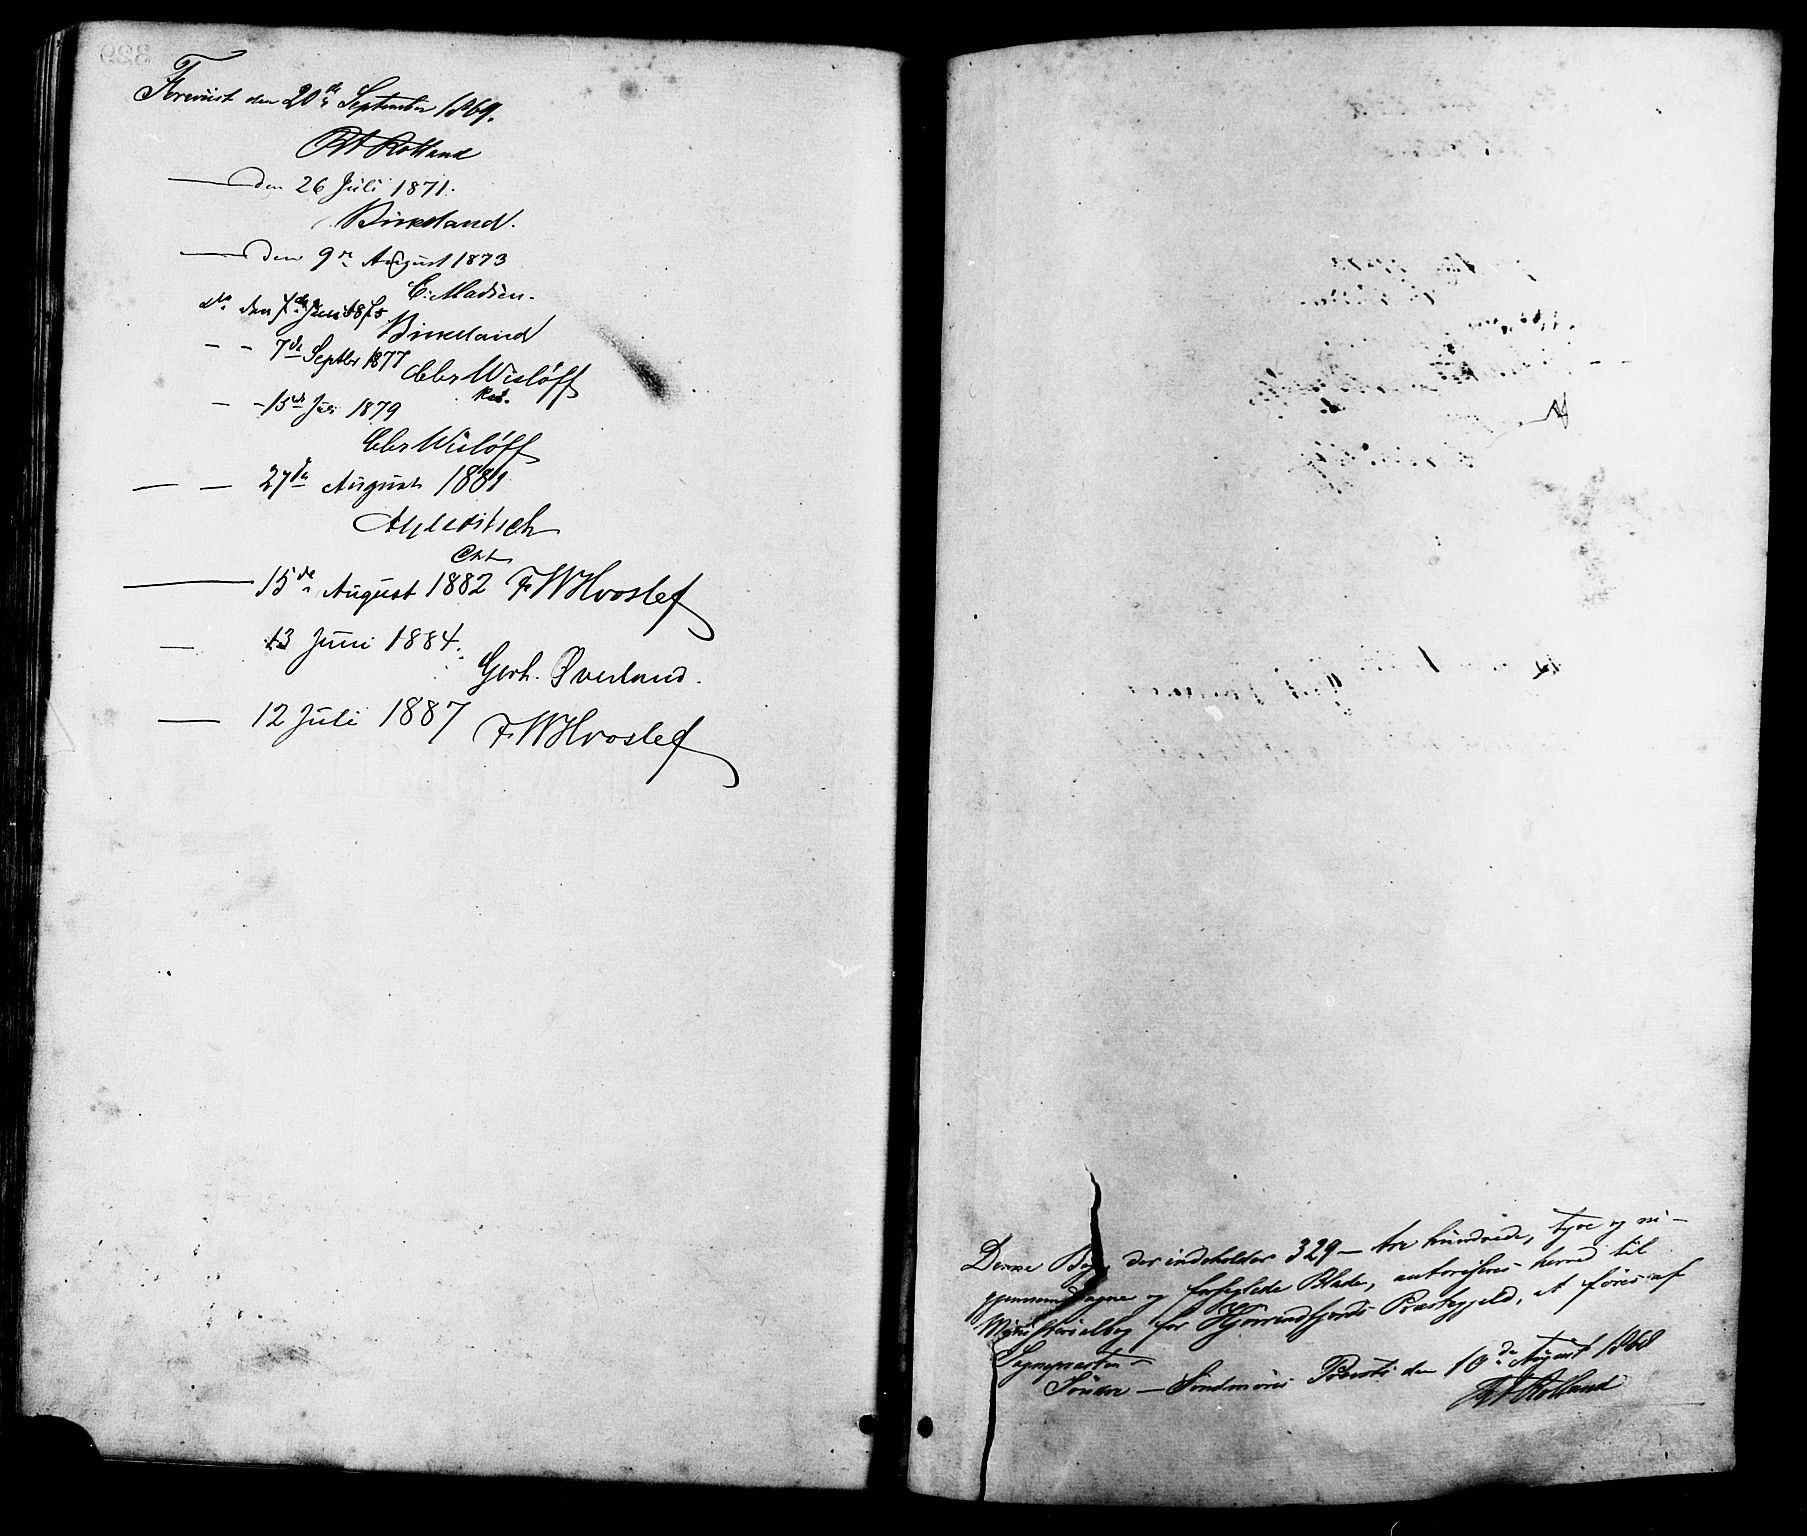 Foreviist den 20de September 1869.
Rolland
— den 26 Juli 1871.
Birkeland.
— den 9de August 1873
C. Madsen.
do den 7de Juni 1875
Birkeland
- - 7de Septbr 1877
Chr Wisløff
Res.
- - 15de Juli 1879
Chr Wisløff
— — 27de August 1881
cst
— 15de August 1882 F W Hvoslef
— 13 Juni 1884.
Gerh. Øverland.
— 12 Juli 1887 F W Hvoslef
Denne Bog, der indeholder 329 — tre hundrede, tyve og ni —
gjennemdragne og forseglede Blade, autoriseres herved til
Ministerialbog for Hjørendfjords Præstegjeld, at føres af
Sognepresten
Søndre — Søndmøres Provsti den 10de August 1868
Rolland